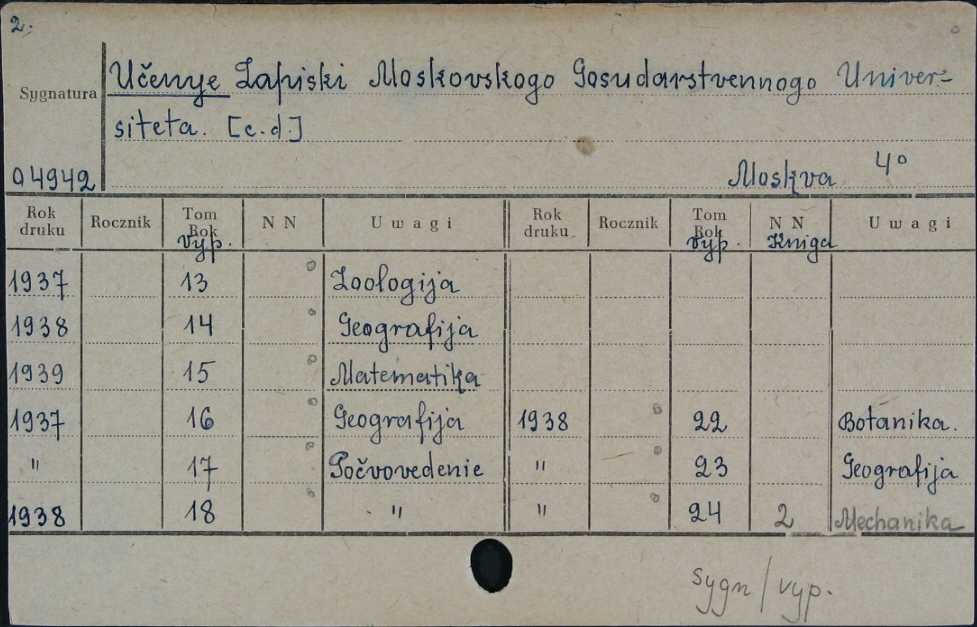 2.
Učenye Zapiski Moskovskogo Gosudarstvennogo Univer-
Sygnatura
siteta. [c.d.]
94942 Moskva 4°
Rok druku Rocznik Tom Rok vyp. N N Uwagi Rok druku Rocznik Tom Rok vyp. N N Kniga Uwagi
1937 13 Zoologija
1938 14 Geografija
1939 15 Matematika
1937 16 Geografija 1938 22 Botanika.
" 17 Počvovedenie " 23 Geografija
1938 18 " " 24 2 Mechanika
sygn/vyp.